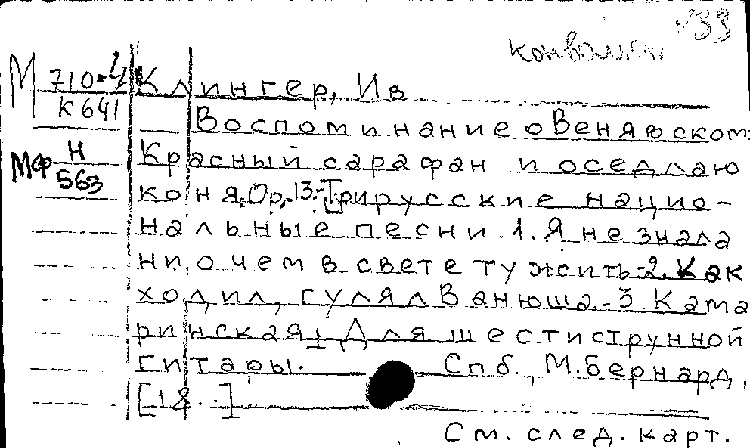 конволют №33
М 710-4 Клингер, Ив
К 641 Воспоминание о Венявском:
МФ Н Красный сарафан и оседлаю
563 коня. Ор. 13.-[Три русские нацио-
нальные песни 1. Я не знала
ни о чем в свете тужить-2. Как
ходил, гулял Ванюша.-3 Кама
ринская]. Для шестиструнной
гитары. Спб, М. Бернард,
[18..]
См. след. карт.